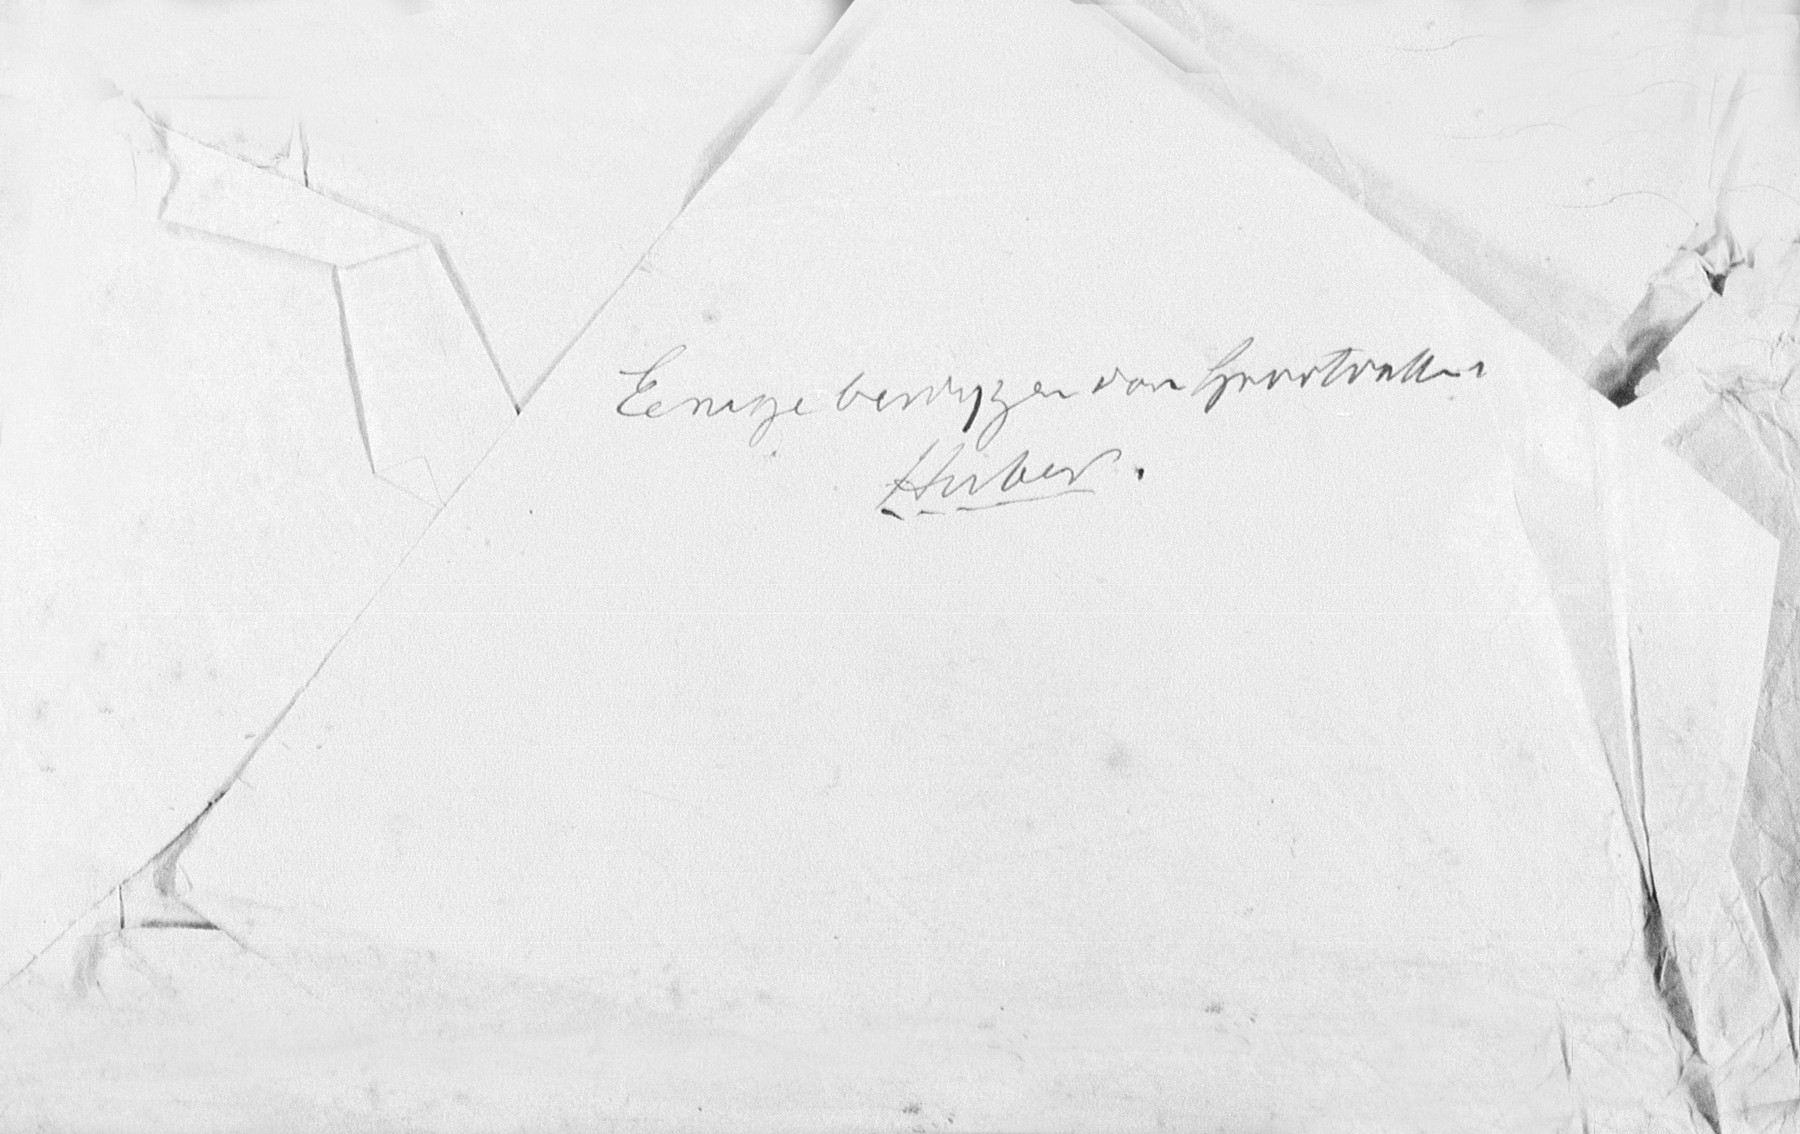 Eenige bewijzen van Grootvader
Huber.